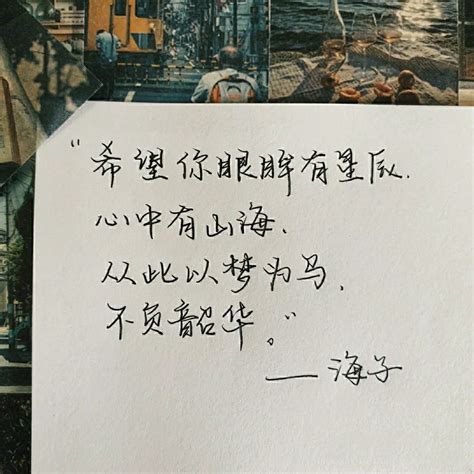 “希望你眼眸有星辰,
心中有山海,
从此以梦为马,
不负韶华。”
——海子